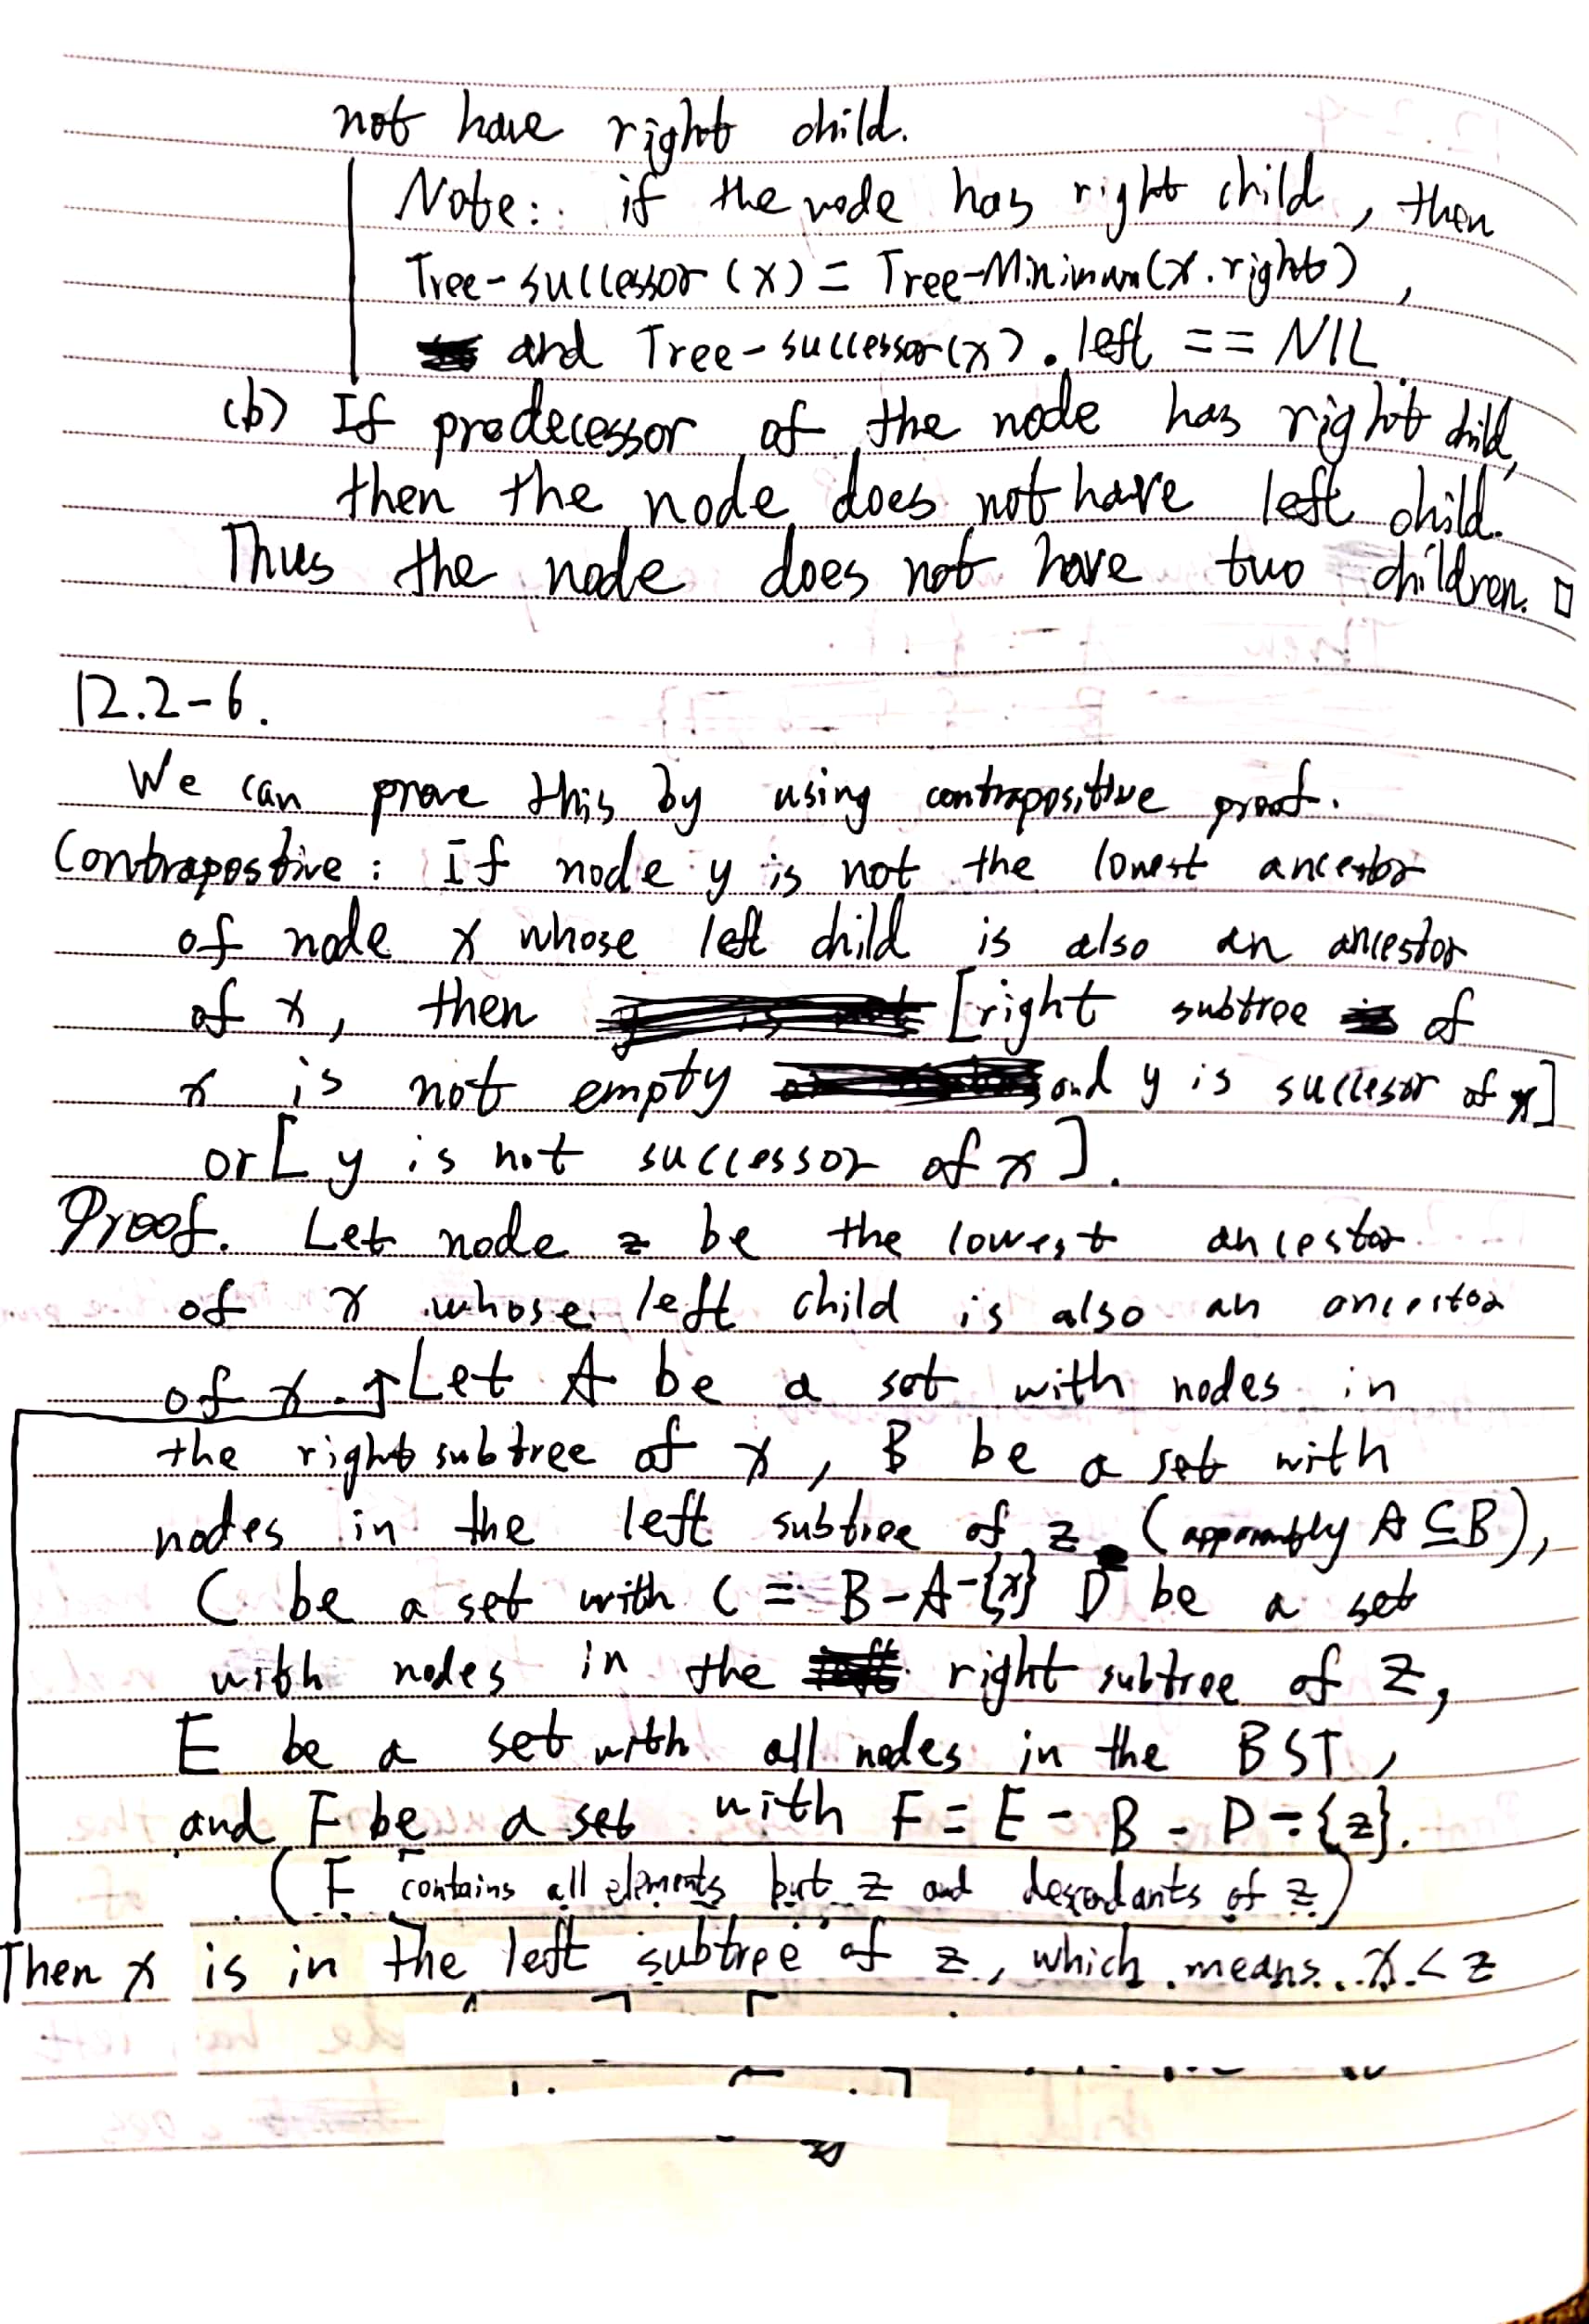 not have right child.
Note: if the node has right child, then
Tree-successor (x) = Tree-Minimum(x.right),
and Tree-successor(x).left == NIL.
(b) If predecessor of the node has right child,
then the node does not have left child.
Thus the node does not have two children. □
12.2-6.
We can prove this by using contrapositive proof.
Contrapostive: If node y is not the lowest ancestor
of node x whose left child is also an ancestor
of x, then [right subtree of
x is not empty and y is succesor of x]
or [y is not successor of x].
Proof. Let node z be the lowest ancestor
of x whose left child is also an ancestor
of x. Let A be a set with nodes in
the right subtree of x, B be a set with
nodes in the left subtree of z (A ⊆ B),
C be a set with C = B-A-{x} D be a set
with nodes in the right subtree of z,
E be a set with all nodes in the BST,
and F be a set with F = E - B - D - {z}.
(F contains all elements but z and descendants of z)
Then x is in the left subtree of z, which means x < z